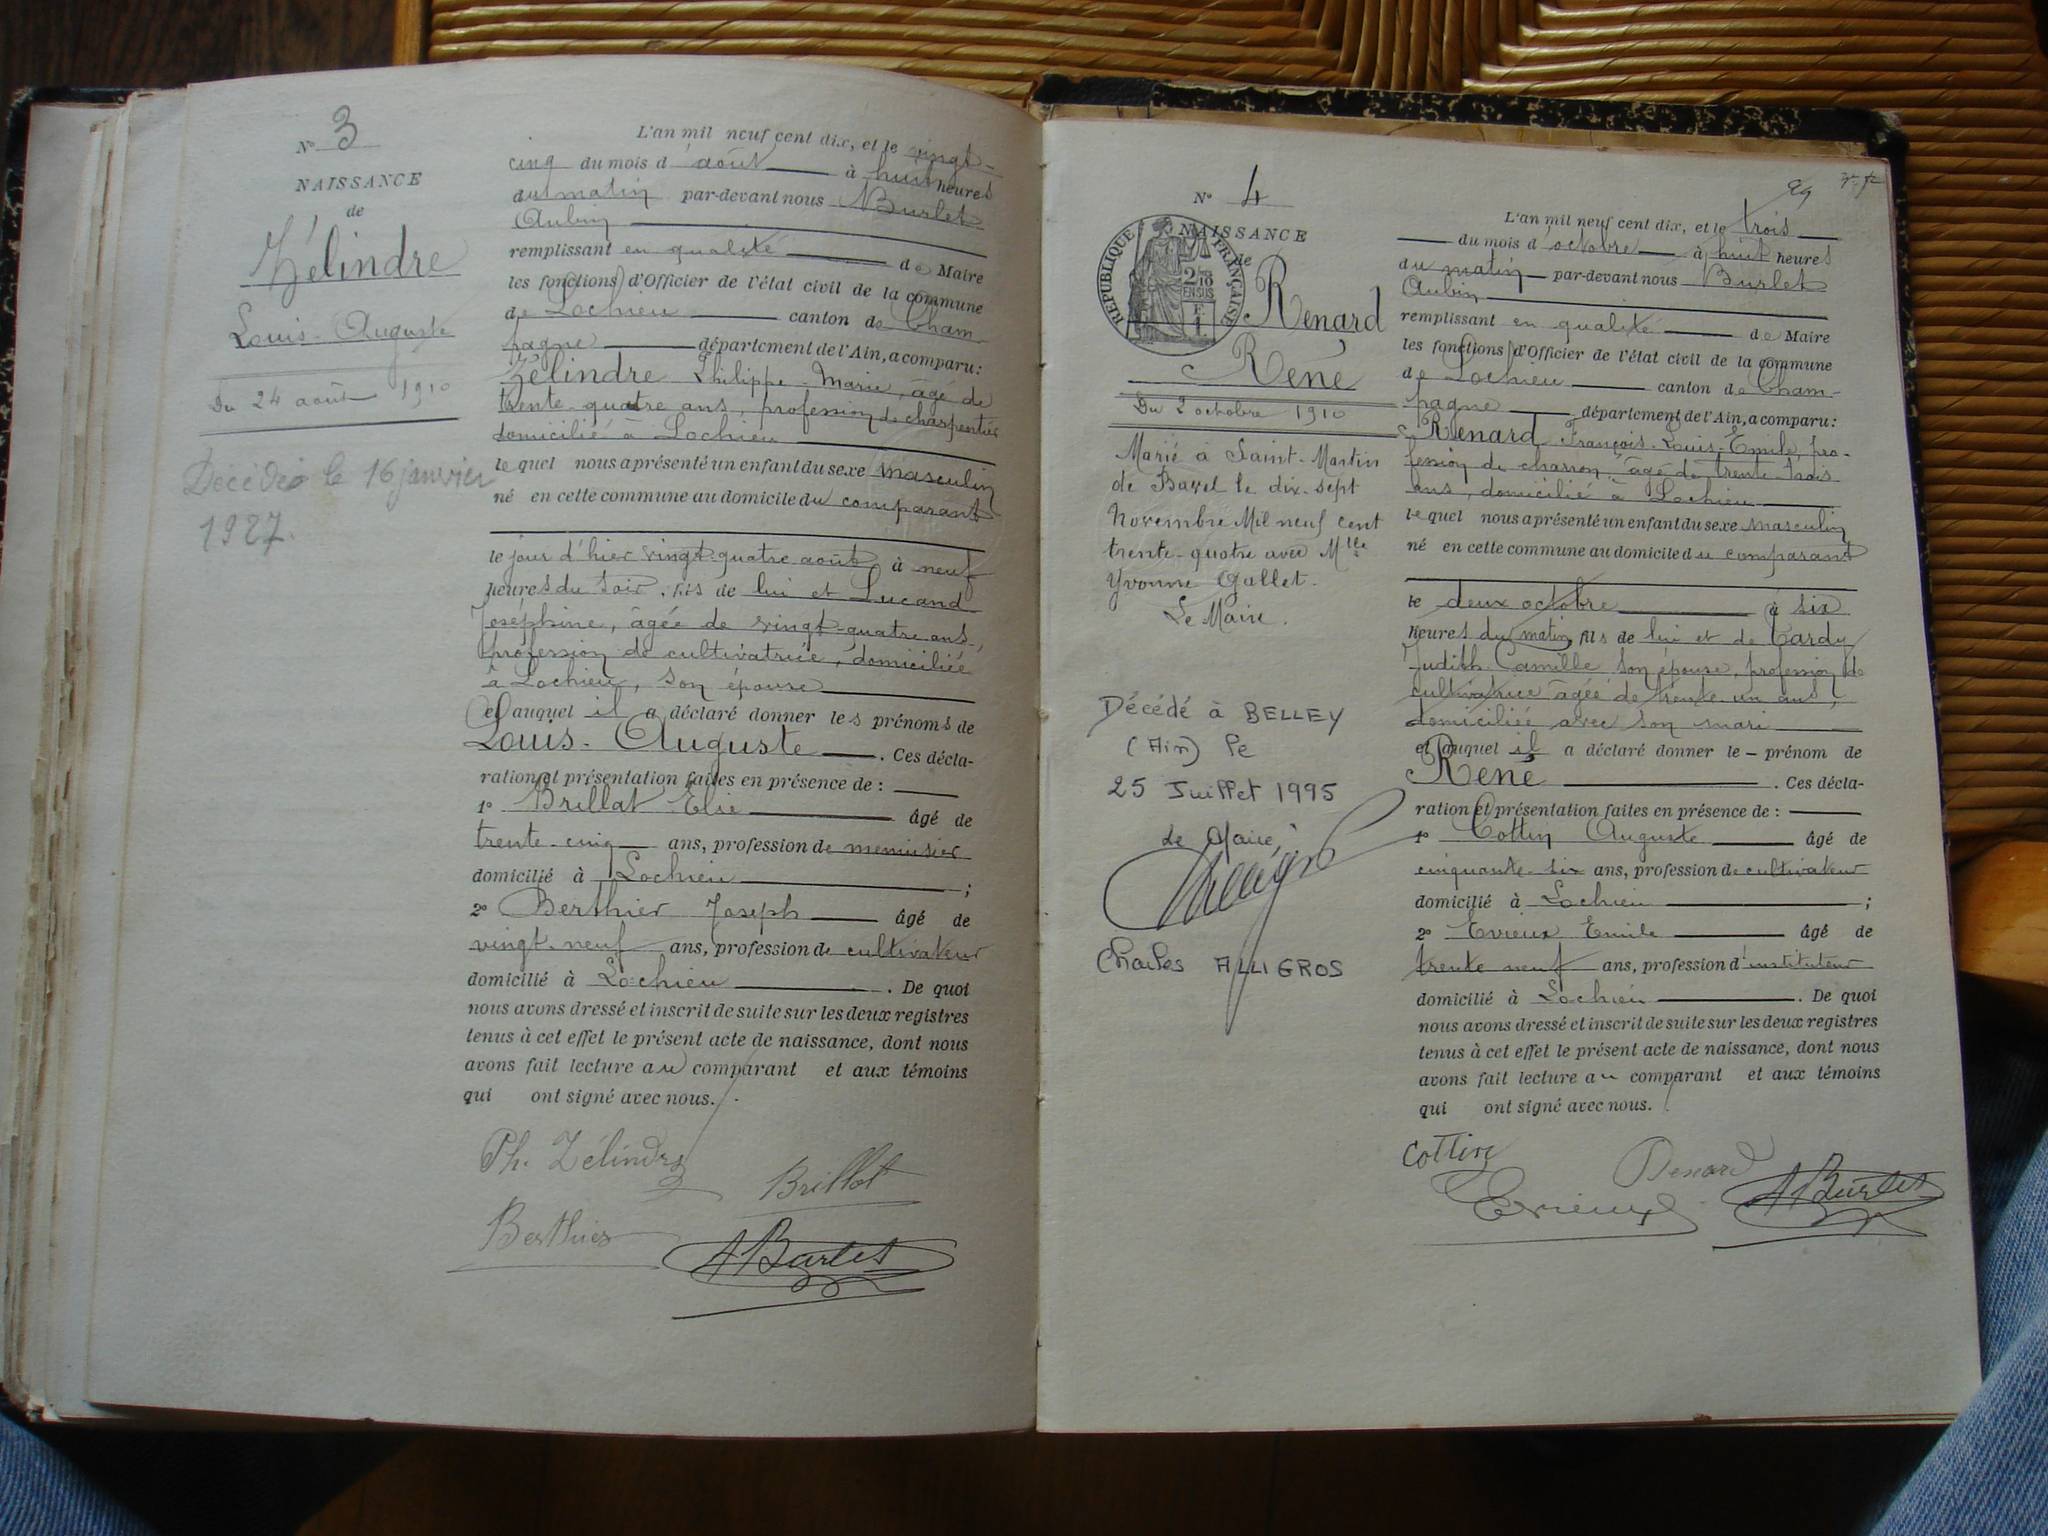 N° 3
NAISSANCE
de
Zélindre
Louis-Auguste
Du 24 août 1910
Décédé le 16 janvier
1927.
L'an mil neuf cent dix, et le vingt-
cinq du mois d'août à huit heures
du matin par-devant nous Burlet
Aubin
remplissant en qualité de Maire
les fonctions d'Officier de l'état civil de la commune
de Lochieu canton de Cham
pagne département de l'Ain, a comparu:
Zélindre Philippe-Marie, âgé de
trente-quatre ans, profession de charpentier
domicilié à Lochieu
lequel nous a présenté un enfant du sexe masculin
né en cette commune au domicile du comparant
le jour d'hier vingt-quatre août à neuf
heures du soir, fils de lui et Lucand
Joséphine, âgée de vingt-quatre ans,
profession de cultivatrice, domiciliée
à Lochieu, son épouse
et auquel il a déclaré donner les prénoms de
Louis-Auguste. Ces décla-
ration et présentation faites en présence de :
1° Brillat Elie âgé de
trente-cinq ans, profession de menuisier
domicilié à Lochieu ;
2° Berthier Joseph âgé de
vingt-neuf ans, profession de cultivateur
domicilié à Lochieu. De quoi
nous avons dressé et inscrit de suite sur les deux registres
tenus à cet effet le présent acte de naissance, dont nous
avons fait lecture au comparant et aux témoins
qui ont signé avec nous.
Ph. Zélindre Brillat
Berthier ABurlet
N° 4
NAISSANCE
de
RÉPUBLIQUE FRANÇAISE
Renard
René
Du 2 octobre 1910
Marié à Saint-Martin
de Bavel le dix-sept
Novembre Mil neuf cent
trente-quatre avec Mlle
Yvonne Gallet.
Le Maire.
Décédé à BELLEY
(Ain) le
25 Juillet 1995
Le Maire,
Charles ALLIGROS
L'an mil neuf cent dix, et le trois
du mois d'octobre à huit heures
du matin par-devant nous Burlet
Aubin
remplissant en qualité de Maire
les fonctions d'Officier de l'état civil de la commune
de Lochieu canton de Cham-
pagne département de l'Ain, a comparu:
Renard François-Louis-Emile, pro-
fession de charron, âgé de trente-trois
ans, domicilié à Lochieu
lequel nous a présenté un enfant du sexe masculin
né en cette commune au domicile du comparant
le deux octobre à six
heures du matin, fils de lui et de Tardy
Judith-Camille son épouse, profession de
cultivatrice âgée de trente-un ans,
domiciliée avec son mari
et auquel il a déclaré donner le - prénom de
René. Ces décla-
ration et présentation faites en présence de :
1° Cottin Auguste âgé de
cinquante-six ans, profession de cultivateur
domicilié à Lochieu ;
2° Evieux Emile âgé de
trente-neuf ans, profession d'instituteur
domicilié à Lochieu. De quoi
nous avons dressé et inscrit de suite sur les deux registres
tenus à cet effet le présent acte de naissance, dont nous
avons fait lecture au comparant et aux témoins
qui ont signé avec nous.
Cottin Renard
Evieux ABurlet